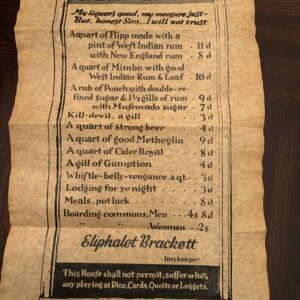 My liquors good, my measure just–
But, honest Sirs...I will not trust.
A quart of Flipp made with a
pint of West Indian rum .. 11 d
with New England rum .. 8 d
A quart of Mimbo with good
West Indian Rum & Loaf . 10 d
A rub of Punch with double-re-
fined sugar & 1½ gills of rum .. 9 d
with Muscovado sugar .. 7 d
Kill-devil, a gill .... 3 d
A quart of strong beer .... 4 d
A quart of good Metheglin .. 9 d
A quart of Cider Royal .. 8 d
A gill of Gumption .. 4 d
Whistle-belly-vengance, a qt. . 3 d
Lodging for ye night .. 3 d
Meals, pot luck .. 8 d
Boarding commons, Men .. 4s 8 d
Women .. 2s
Eliphalet Brackett
Innkeeper
This House shall not permit, suffer or have
any playing at Dice, Cards, Quoits or Loggets.